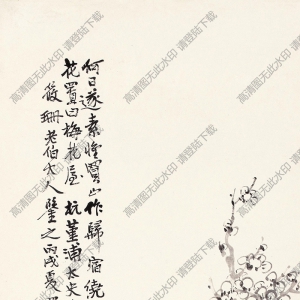 何日遂素怀买山作归宿绕
花置白梅花屋杭董浦太史
筱珊老伯大人鉴之丙戌夏
高清图无此水印 请登陆下载
高清图无此水印 请登陆下载
高清图无此水印 请登陆下载
高清图无此水印 请登陆下载
高清图无此水印 请登陆下载
高清图无此水印 请登陆下载